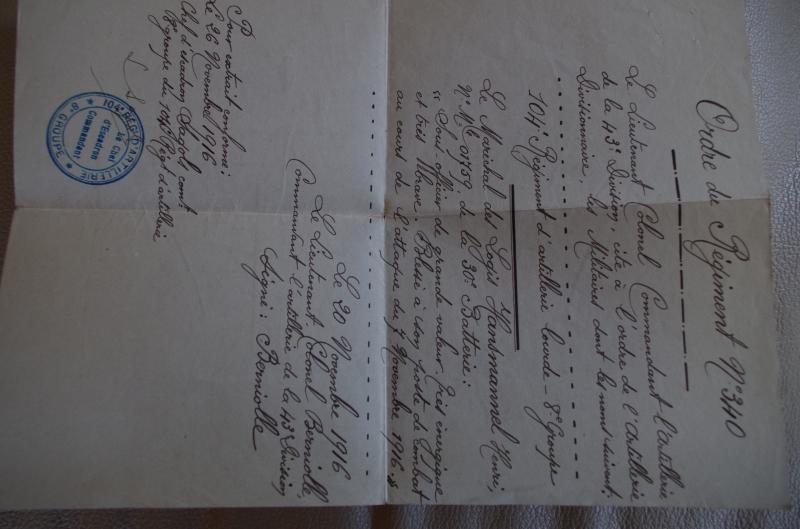 Ordre du Régiment N° 340
Le Lieutenant Colonel Commandant l'artillerie
de la 43e Division, cite à l'ordre de l'artillerie
Divisionnaire, les Militaires dont les noms suivent.
104e Régiment d'artillerie lourde - 8e Groupe
Le Maréchal des Logis Hansmannel Henri,
N° Mle 01759 de la 30e Batterie:
"Sous officier de grande valeur, très énergique
et très brave. Blessé à son poste de combat
au cours de l'attaque du 7 Novembre 1916."
Le 20 Novembre 1916
Le Lieutenant Colonel Berniolle
Commandant l'artillerie de la 43e Division
Signé: Berniolle
Pour extrait conforme:
Le 26 Novembre 1916
Chef d'escadron Sajol comt
8e groupe du 104e Régt d'artillerie
104e REG. D'ARTILLERIE
8e GROUPE
Le Chef
d'Escadron
Commandant